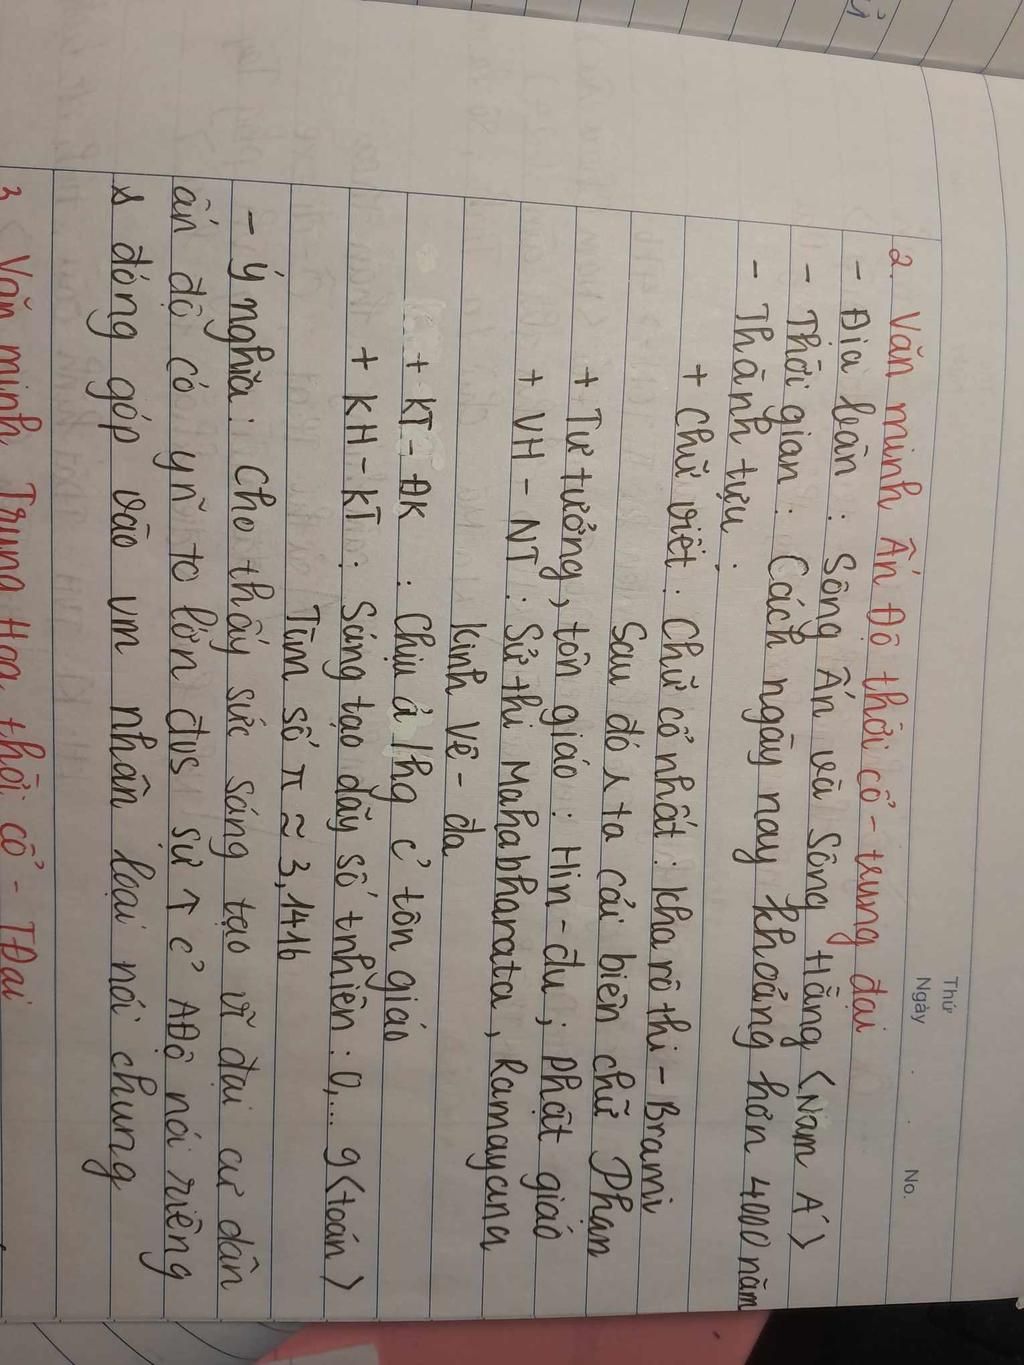 Thứ
Ngày . . No.
2. Văn minh Ấn Độ thời cổ - trung đại
- Địa bàn : Sông Ấn và Sông Hằng (Nam Á)
- Thời gian : Cách ngày nay khoảng hơn 4000 năm
- Thành tựu :
+ Chữ viết : Chữ cổ nhất : Kha rô thi - Brami
Sau đó ta cải biên chữ Phạn
+ Tư tưởng, tôn giáo : Hin - đu ; Phật giáo
+ VH - NT : Sử thi Mahabharata, Ramayana
Kinh Vê - đa
+ KT - ĐK : Chịu ả' hg c' tôn giáo
+ KH - KT : Sáng tạo dãy số tnhiên : 0,... 9 (toán)
Tìm số π ≈ 3,1416
- Ý nghĩa : Cho thấy sức sáng tạo vĩ đại cư dân
ấn độ có ý to lớn đvs sử ↑ c' AĐộ nói riêng
& đóng góp vào vm nhân loại nói chung
3 < Văn minh Trung Hoa thời cổ - TĐại